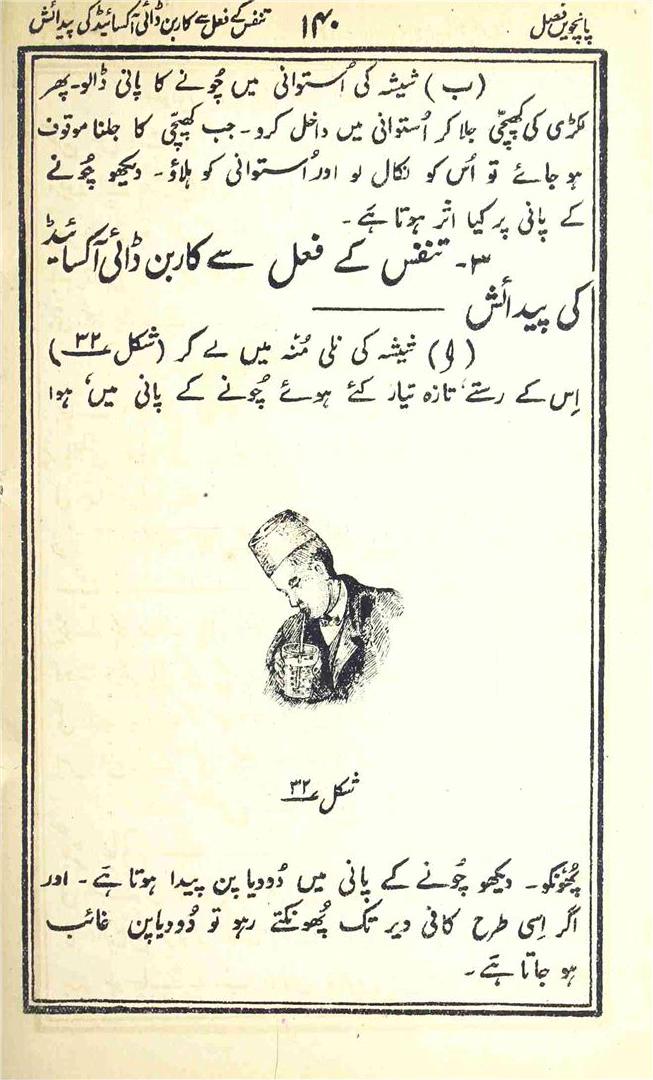 پانچویں فصل ۱۴۰ تنفس کے فعل سے کاربن ڈائی آکسائیڈ کی پیدائش
(ب) شیشہ کی اُستوانی میں چُونے کا پانی ڈالو۔ پھر
لکڑی کی کھپچّی جلا کر اُستوانی میں داخل کرو۔ جب کھپچّی کا جلنا موقوف
ہو جائے تو اُس کو نکال لو اور اُستوانی کو ہلاؤ۔ دیکھو چُونے
کے پانی پر کیا اثر ہوتا ہَے۔
۳۔ تنفس کے فعل سے کاربن ڈائی آکسائیڈ
کی پیدائش
(ا) شیشہ کی نلی مُنہ میں لے کر (شکل ۳۲)
اِس کے رستے، تازہ تیار کئے ہوئے چُونے کے پانی میں، ہوا
شکل ۳۲
پُھونکو۔ دیکھو چُونے کے پانی میں دُودیا پن پیدا ہوتا ہَے۔ اور
اگر اِسی طرح کافی دیر تک پُھونکتے رہو تو دُودیا پن غائب
ہو جاتا ہَے۔